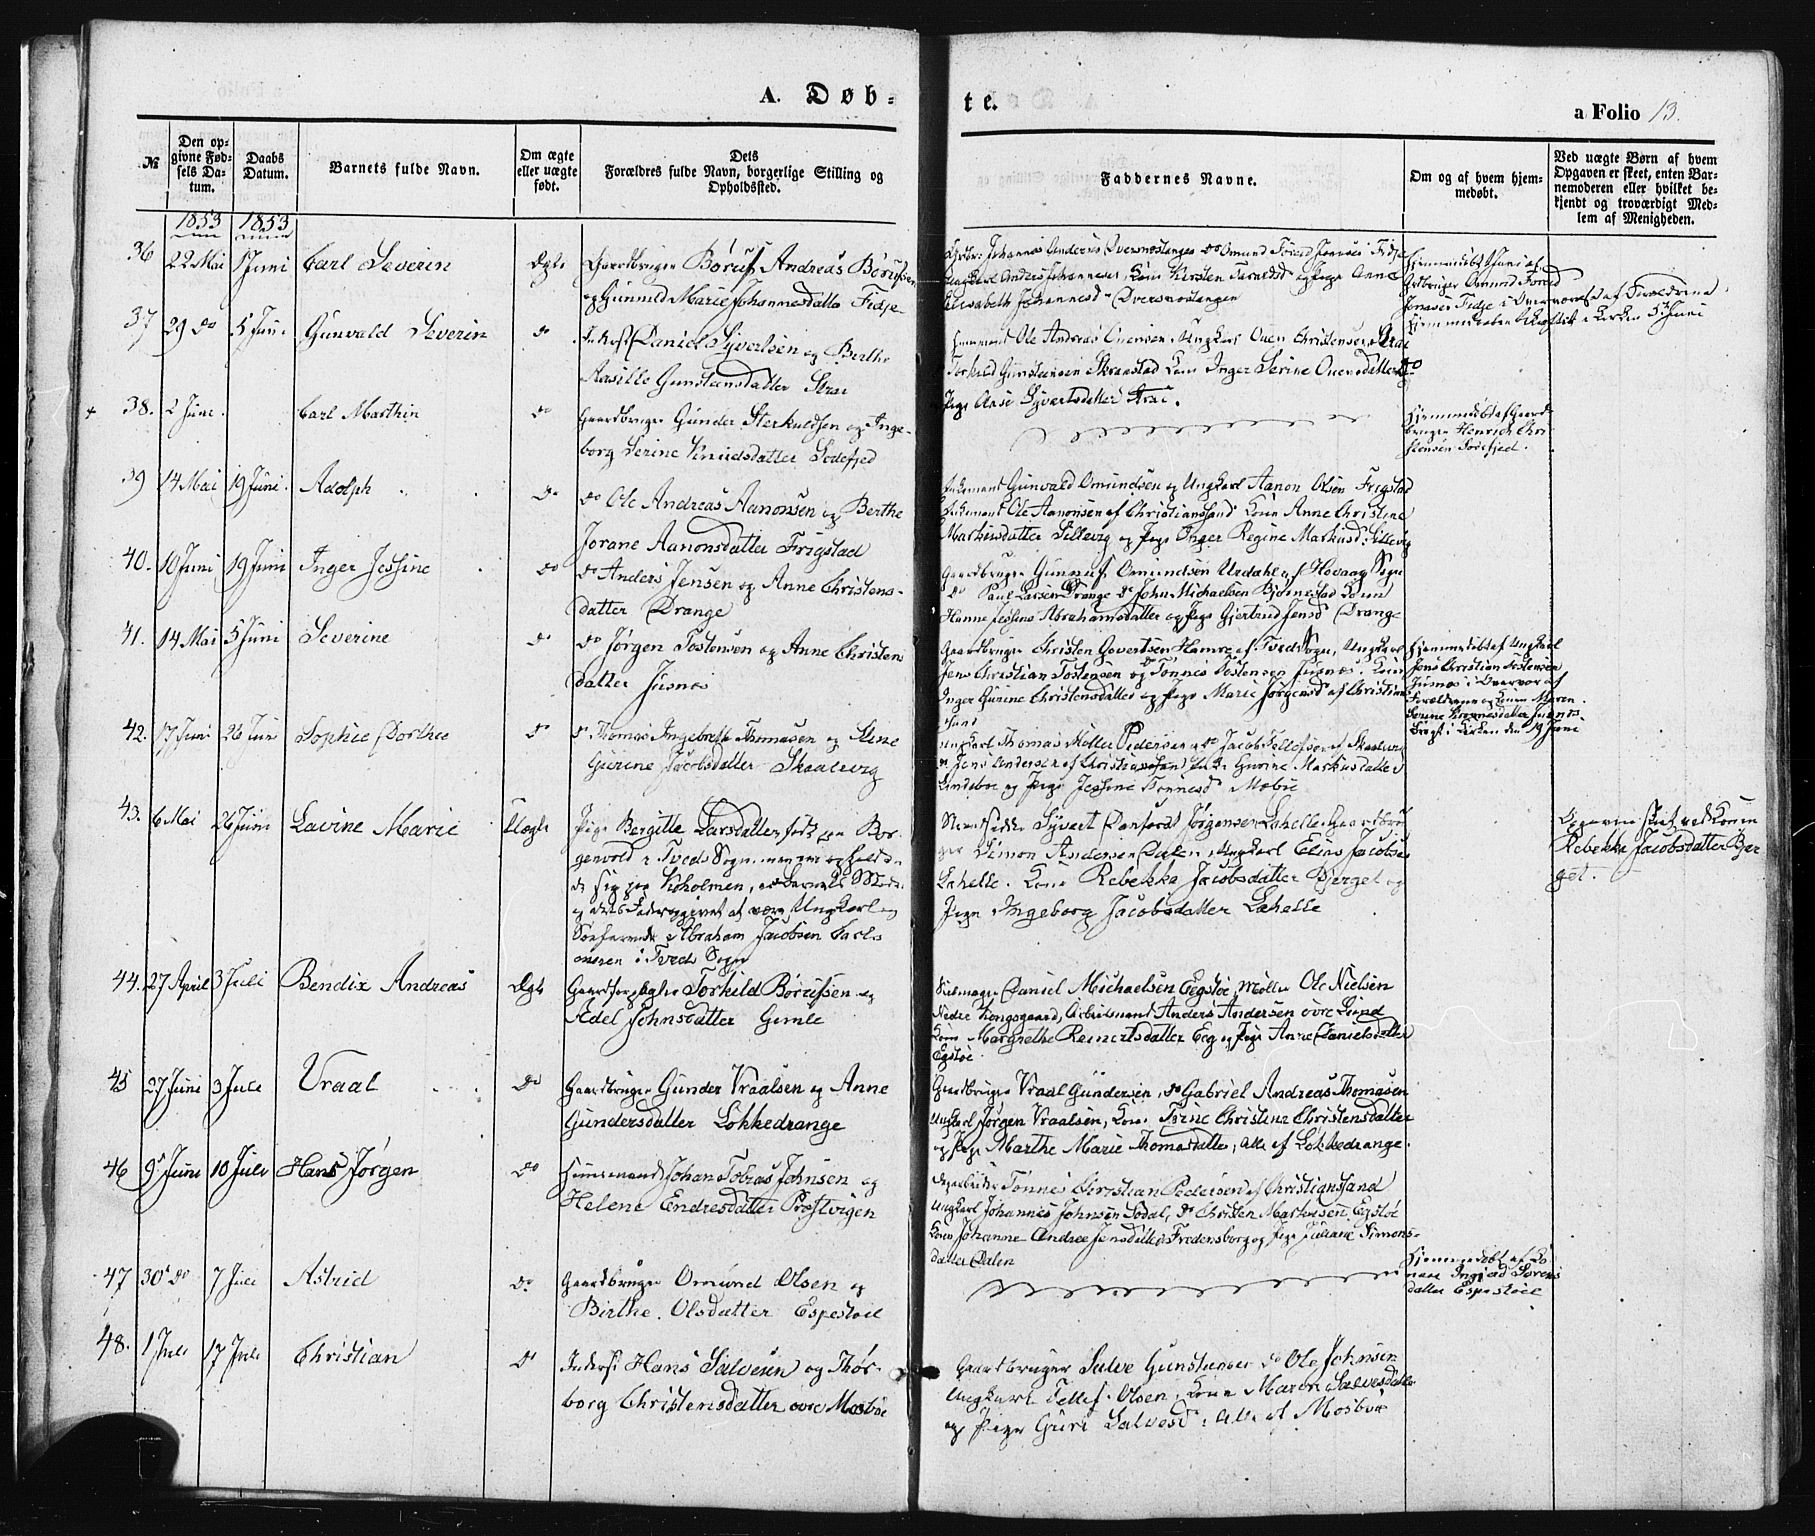 A. Døb-
te.
a Folio 13.
№
Den op-
givne Fød-
sels Da-
tum.
Daabs
Datum.
Barnets fulde Navn.
Om ægte
eller uægte
født.
Dets
Forældres fulde Navn, borgerlige Stilling og
Opholdssted.
Faddernes Navne.
Om og af hvem hjem-
medøbt.
Ved uægte Børn af hvem
Opgaven er skeet, enten Bar-
nemoderen eller hvilket be-
kjendt og troværdigt Med-
lem af Menigheden.
1853 1853
36 22 Mai 1 Juni Carl Severin Ægte Gaardbruger Børuf Andreas Børufsen
og Gunnild Marie Johannesdatter Fidje
Elisabeth Johannesd Dversnestangen
37 29 do 5 Juni Gunvald Severin do Inderst Daniel Syvertsen og Berthe
Aasille Gunsteinsdatter Strai
Ole Andreas Ounsen Ungkarl Ouen Christensen Strai
Torkild Gunsteinsen Skraastad Kone Inger Serine Ouensdatter
Pige Aase Syvertsdatter Strai.
38. 2 Juni. Carl Marthin do Gaardbruger Gunder Sterkuldsen og Inge-
borg Serine Knudsdatter Sodefjed
Hjemmedøbt af Gaard-
bruger Henrich Chri-
stensen Sodefjed.
39 14 Mai 19 Juni. Adolph do do Ole Andreas Aanonsen og Berthe
Jorane Aanonsdatter Frigstad
Gunvald Omundsen og Ungkarl Aanon Olsen Frigstad
Ole Aanonsen af Christianssand Kone Anne Christine
Markusdatter Sillevig og Pige Inger Regine Markusd: Sillevig
40. 10 Juni 19 Juni Inger Jessine do do Anders Jensen og Anne Christens-
datter Drange
Gaardbruger Gunnuf Omundsen Urdahl af Hovaag Sogn
do Paul Larsen Drange do John Michaelsen Bjørnestad Kone
Hanne Jessine Abrahamsdatter og Pige Gjertrud Jensd Drange
41. 14 Mai 5 Juni Severine do do Jørgen Tostensen og Anne Christens
datter Jusnes
Gaardbruger Christen Govertsen Hamre af Tveds Sogn, Ungkarl
Jens Christian Tostensen og do Tønnes Tostensen Jusnes. Kone
Inger Gurine Christensdatter og Pige Marie Jørgensd af Christian
sand
Hjemmedøbt af Ungkarl
Jens Christian Tostensen
Jusnes i Overvær af
Forældrene og Konen Maren
42. 17 Juni 26 Juni Sophie Dorthea do do Thomas Ingebreth Thomasen og Stine
Gurine Jacobsdatter Skaalevig
Ungkarl Thomas Møller Pedersen do Jacob Tellefsen af Skaalevig
do Jens Andersen af Christianssand Gurine Markusdatter
Lindeboe og Pige Jessine Tønnesd Moboe
43. 6 Mai 26 Juni Lavine Marie Uægte Pige Bergitte Larsdatter født paa Bor-
genvold i Tveds Sogn, men nu opholden-
de sig paa Kuholmen,
og Barnets Fader opgivet at være Ungkarl og
Søefarende Abraham Jacobsen
i Tveds Sogn
Syvert Danford Jørgensen Lahelle Gaardbru-
ger Simon Andersen Dalen, Ungkarl Elias Jacobsen
Lahelle. Kone Rebekka Jacobsdatter Bjerget og
Pige Ingeborg Jacobsdatter Lahelle
Opgaven skeet ved Konen
Rebekka Jacobsdatter Bjer
get.
44. 27 April 3 Juli Bendix Andreas Ægte Gaardforpagter Torkild Børufsen og
Adel Johnsdatter Gimle
Daniel Michaelsen Eegstøe, Møller Ole Nielsen
Nedre Kongsgaard, Arbeidsmand Anders Andersen øvre Lund
Kone Margrethe Reinertsdatter Eeg og Pige Anne Danielsdatter
Egstøe
45 27 Juni 3 Juli Vraal do Gaardbruger Gunder Vraalsen og Anne
Gundersdatter Løkkedrange
Gaardbruger Vraal Gundersen, do Gabriel Andreas Thomasen
Ungkarl Jørgen Vraalsen, Kone Trine Christine Christensdatter
og Pige Marthe Marie Thomasdatter, Alle af Løkkedrange.
46 9 Juni 10 Juli Hans Jørgen do Huusmand Johan Tobias Johnsen og
Helene Endresdatter Prestvigen
Tønnes Christian Pedersen af Christianssand
Ungkarl Johannes Johnsen Sødal, do Christen Markusen Egstøe
Kone Johanne Andrea Jensdatter Fredensborg og Pige Juliane Simons-
datter Dalen
47 30 do 7 Juli Astrid do Gaardbruger Omund Olsen og
Birthe Olsdatter Espestøel
Hjemmedøbt af Ko
nen Ingjerd Sørens
datter Espestøel
48. 1 Juli 17 Juli Christian do Inderst Hans Salvesen og Thor-
borg Christensdatter øvre Mosbøe
Gaardbruger Salve Gunstensen do Ole Johnsen
Ungkarl Tellef Olsen, Kone Maren Salvesdatter
og Pige Guri Salvesd Alle af Mosbøe